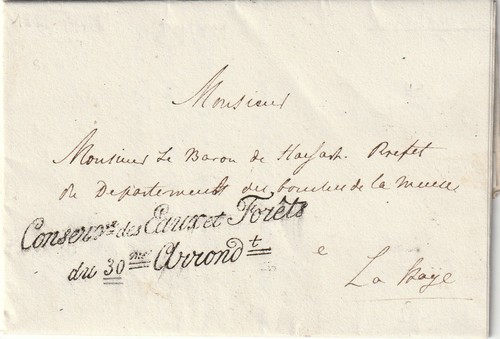 Monsieur
Monsieur Le Baron de Prefet
du Departement des bouches de la meuse
Conserv.on des Eaux et Forêts
du 30.me Arrond.t
La haye